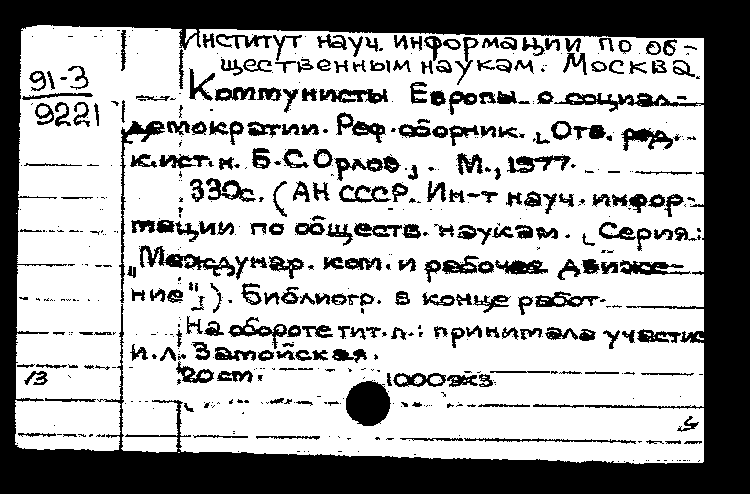 Институт науч. информации по об-
щественным наукам. Москва.
91-3
9221
Коммунисты Европы о социал-
демократии. Реф. сборник. [Отв. ред.
к.ист.н. Б.С.Орлов]. М., 1977.
330с. (АН СССР. Ин-т науч. инфор-
мации по обществ. наукам. [Серия:
"Междунар. ком. и рабочее движе-
ние"]). Библиогр. в конце работ.
На обороте тит.л.: принимала участие
И.Л. Затойская.
13
20см. 1000экз